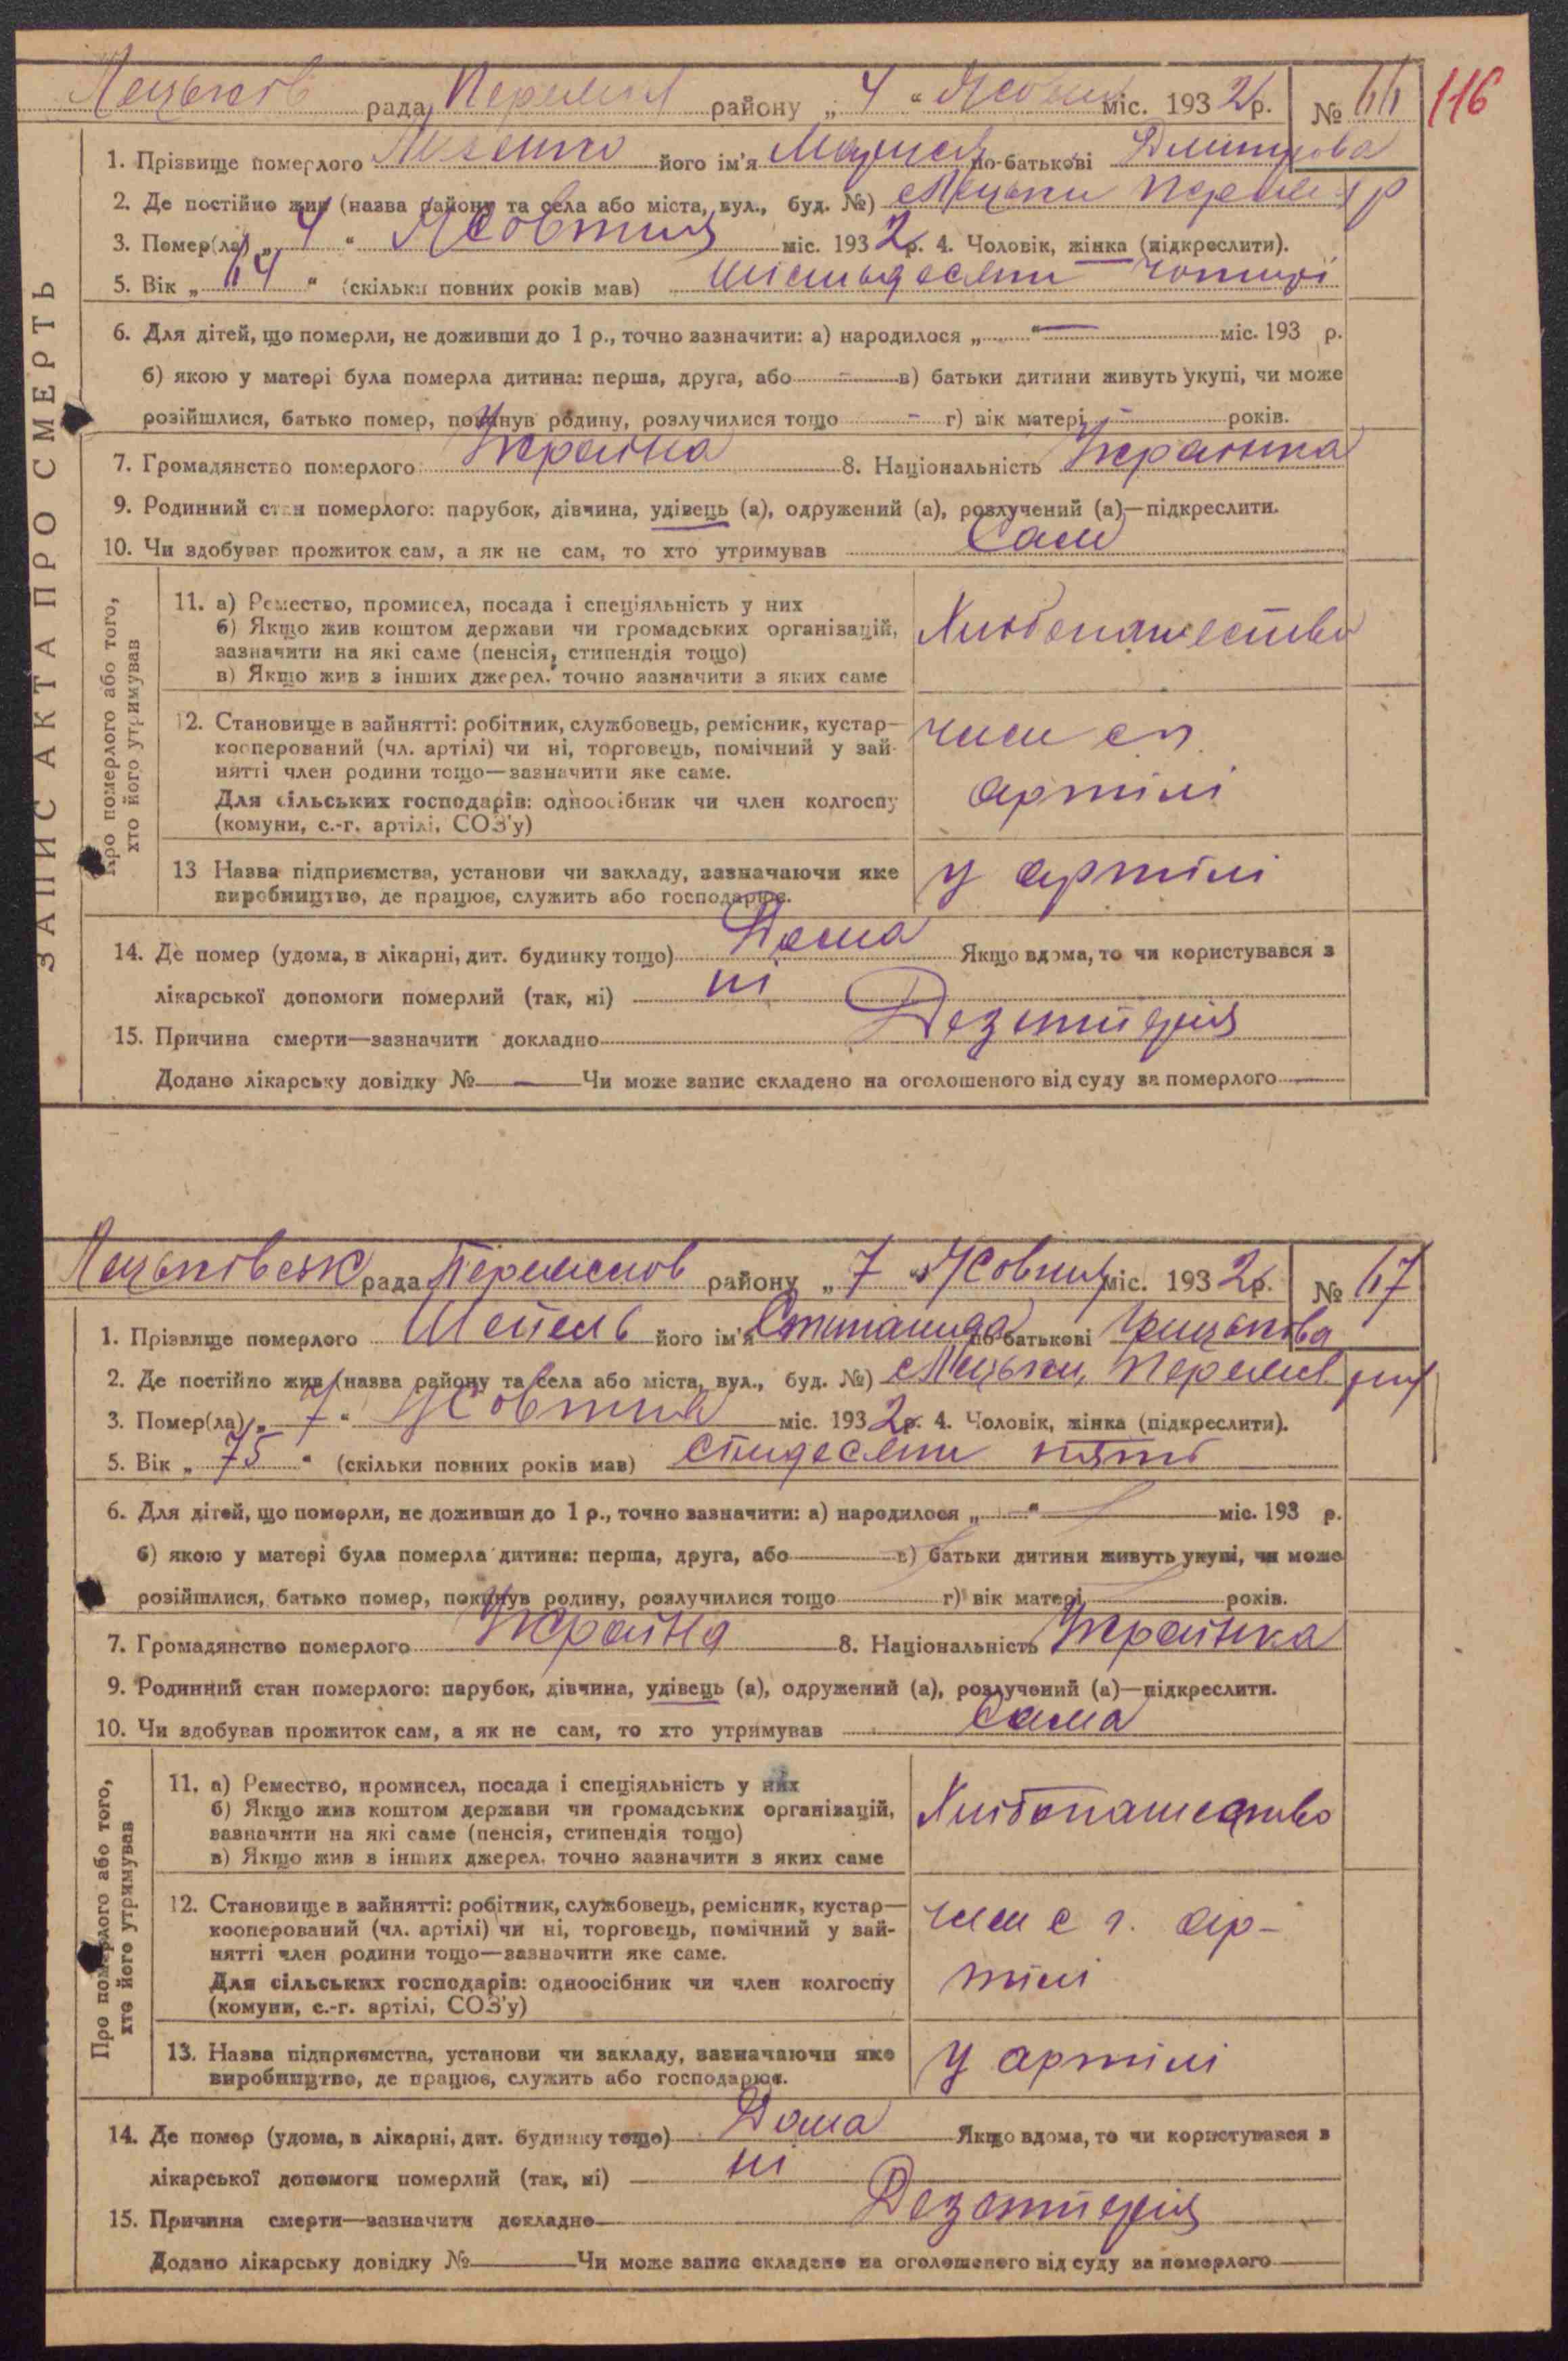 рада району „ 4 “ Жовтня міс. 1932 р. № 66 116
1. Прізвище померлого його ім'я Мария по-батькові Дмитрова
2. Де постійно жив (назва району та села або міста, вул., буд. №) Мацьки
3. Помер(ла) „ 4 “ Жовтня міс. 1932 р. 4. Чоловік, жінка (підкреслити).
5. Вік „ 64 “ (скільки повних років мав) шістьдесяти чотирі
6. Для дітей, що померли, не доживши до 1 р., точно зазначити: а) народилося „ “ — міс. 193 р.
б) якою у матері була померла дитина: перша, друга, або — в) батьки дитини живуть укупі, чи може
розійшлися, батько помер, покинув родину, розлучилися тощо - г) вік матері - років.
7. Громадянство померлого Украйна 8. Національність Украинка
9. Родинний стан померлого: парубок, дівчина, удівець (а), одружений (а), розлучений (а)—підкреслити.
10. Чи здобував прожиток сам, а як не сам, то хто утримував Сам
ЗАПИС АКТА ПРО СМЕРТЬ
Про померлого або того,
хто його утримував
11. а) Ремество, промисел, посада і спеціяльність у них
б) Якщо жив коштом держави чи громадських організацій,
зазначити на які саме (пенсія, стипендія тощо)
в) Якщо жив з інших джерел, точно зазначити з яких саме
Хлібопашество
12. Становище в зайнятті: робітник, службовець, ремісник, кустар—
кооперований (чл. артілі) чи ні, торговець, помічний у зай-
нятті член родини тощо—зазначити яке саме.
Для сільських господарів: одноосібник чи член колгоспу
(комуни, с.-г. артілі, СОЗ'у)
член сг
артілі
13 Назва підприємства, установи чи закладу, зазначаючи яке
виробництво, де працює, служить або господарює.
у артілі
14. Де помер (удома, в лікарні, дит. будинку тощо) Дома Якщо вдома, то чи користувався з
лікарської допомоги померлий (так, ні) ні
15. Причина смерти—зазначити докладно Дезентерія
Додано лікарську довідку № — Чи може запис складено на оголошеного від суду за померлого —
рада району „ 7 “ Жовтня міс. 1932 р. № 67
1. Прізвище померлого Шепель його ім'я Степанида по батькові Грицькова
2. Де постійно жив (назва району та села або міста, вул., буд. №) Мацьки,
3. Помер(ла) „ 7 “ Жовтня міс. 1932 р. 4. Чоловік, жінка (підкреслити).
5. Вік „ 75 “ (скільки повних років мав) сімдесяти пять
6. Для дітей, що померли, не доживши до 1 р., точно зазначити: а) народилося „ “ міс. 193 р.
б) якою у матері була померла дитина: перша, друга, або в) батьки дитини живуть укупі, чи може
розійшлися, батько помер, покинув родину, розлучилися тощо г) вік матері років.
7. Громадянство померлого Украйна 8. Національність Украйнка
9. Родинний стан померлого: парубок, дівчина, удівець (а), одружений (а), розлучений (а)—підкреслити.
10. Чи здобував прожиток сам, а як не сам, то хто утримував Сама
Про померлого або того,
хто його утримував
11. а) Ремество, промисел, посада і спеціяльність у них
б) Якщо жив коштом держави чи громадських організацій,
зазначити на які саме (пенсія, стипендія тощо)
в) Якщо жив з інших джерел, точно зазначити з яких саме
Хлібопашество
12. Становище в зайнятті: робітник, службовець, ремісник, кустар—
кооперований (чл. артілі) чи ні, торговець, помічний у зай-
нятті член родини тощо—зазначити яке саме.
Для сільських господарів: одноосібник чи член колгоспу
(комуни, с.-г. артілі, СОЗ'у)
член с г. ар-
тілі
13. Назва підприємства, установи чи закладу, зазначаючи яке
виробництво, де працює, служить або господарює.
у артілі
14. Де помер (удома, в лікарні, дит. будинку тощо) Дома Якщо вдома, то чи користувався з
лікарської допомоги померлий (так, ні) ні
15. Причина смерти—зазначити докладно Дезентерія
Додано лікарську довідку № Чи може запис складено на оголошеного від суду за померлого